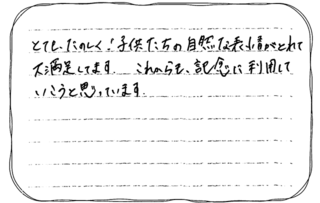 とてもたのしく！子供たちの自然な表情がとれて
大満足してます。これからも、記念に利用して
いこうと思っています。